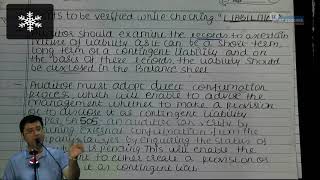 nts to be verified while checking "LIABILITIE
Auditor should examine the records to ascertain
nature of liability as it can be a short term,
long term or a contingent liability and on
the basis of these records the liability should
be disclosed in the Balance sheet
- Auditor must adopt direct confirmation
process which will enable to advise the
management whether to make a provision
or to disclose it as contingent liability
as per SA 505 an auditor can verify by
obtaining External confirmation from the
company lawyers by Enquiring the status of
pending This will enable the
to either create a provision or
it as contingent liab